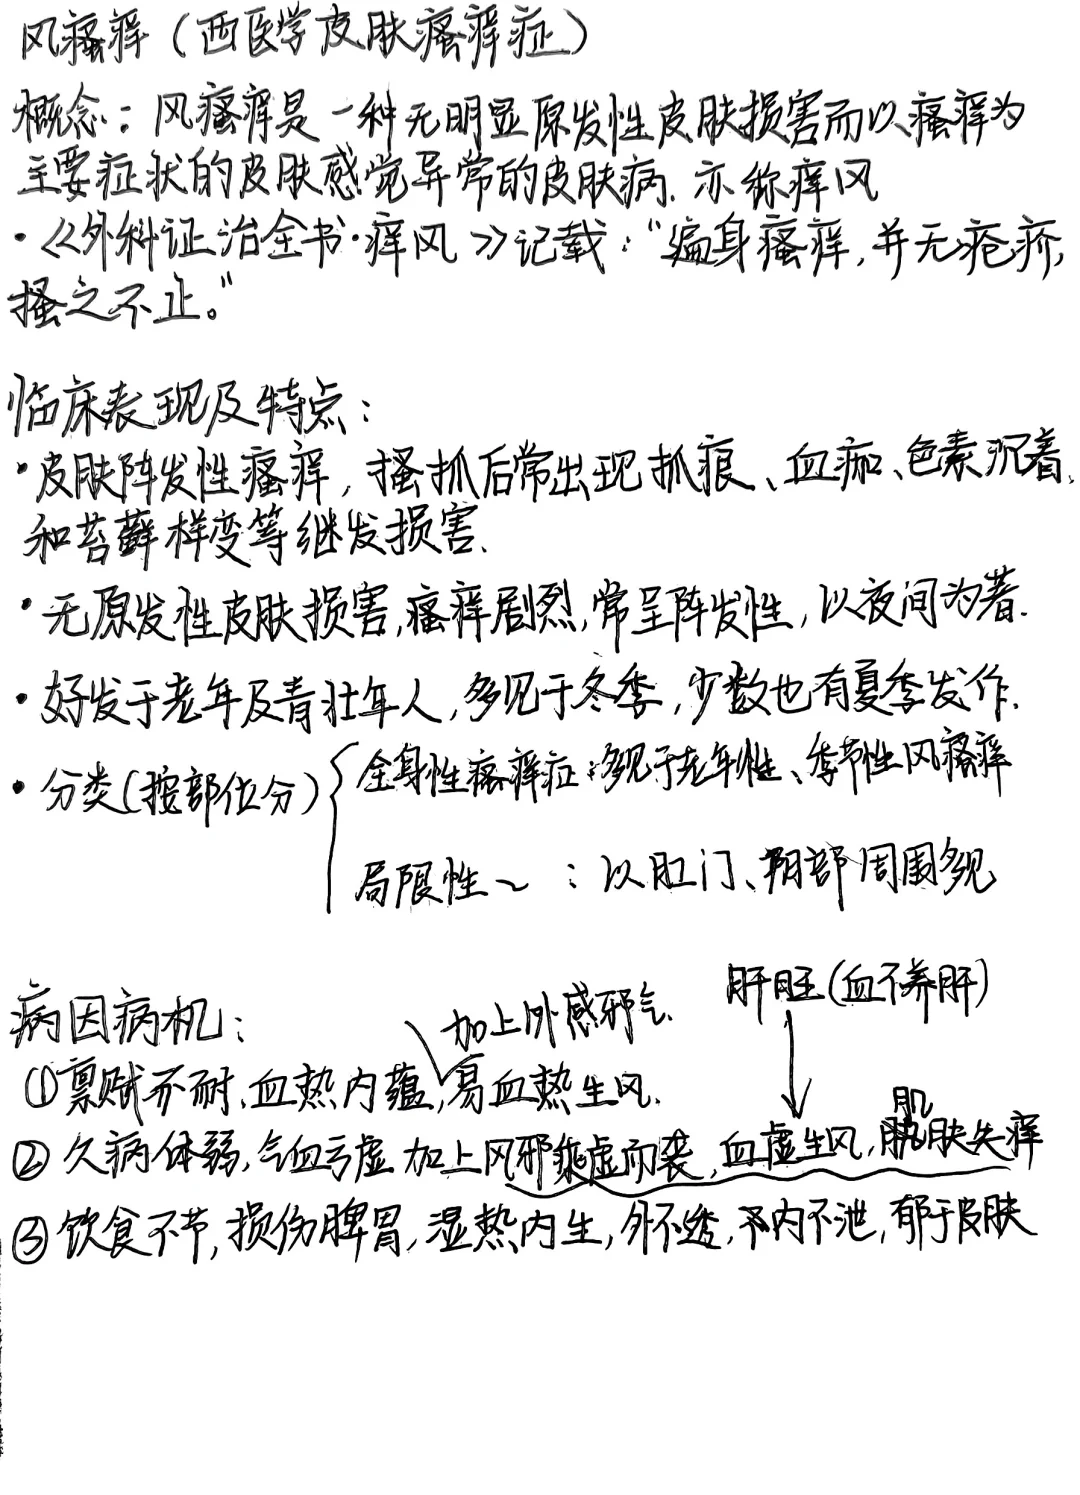 风瘙痒（西医学皮肤瘙痒症）
概念：风瘙痒是一种无明显原发性皮肤损害而以瘙痒为
主要症状的皮肤感觉异常的皮肤病.亦称痒风
·《外科证治全书·痒风》记载："遍身瘙痒,并无疮疥,
搔之不止。"
临床表现及特点：
·皮肤阵发性瘙痒,搔抓后常出现抓痕、血痂、色素沉着、
和苔藓样变等继发损害.
·无原发性皮肤损害,瘙痒剧烈,常呈阵发性,以夜间为著.
·好发于老年及青壮年人,多见于冬季,少数也有夏季发作.
·分类(按部位分){全身性瘙痒症:多见于老年性、季节性风瘙痒
局限性~：以肛门、阴部周围多见
肝旺(血不养肝)
病因病机：
加上外感邪气
①禀赋不耐,血热内蕴,易血热生风.
肌
②久病体弱,气血亏虚加上风邪乘虚而袭,血虚生风,肤失痒
③饮食不节,损伤脾胃,湿热内生,外不透,内不泄,郁于皮肤